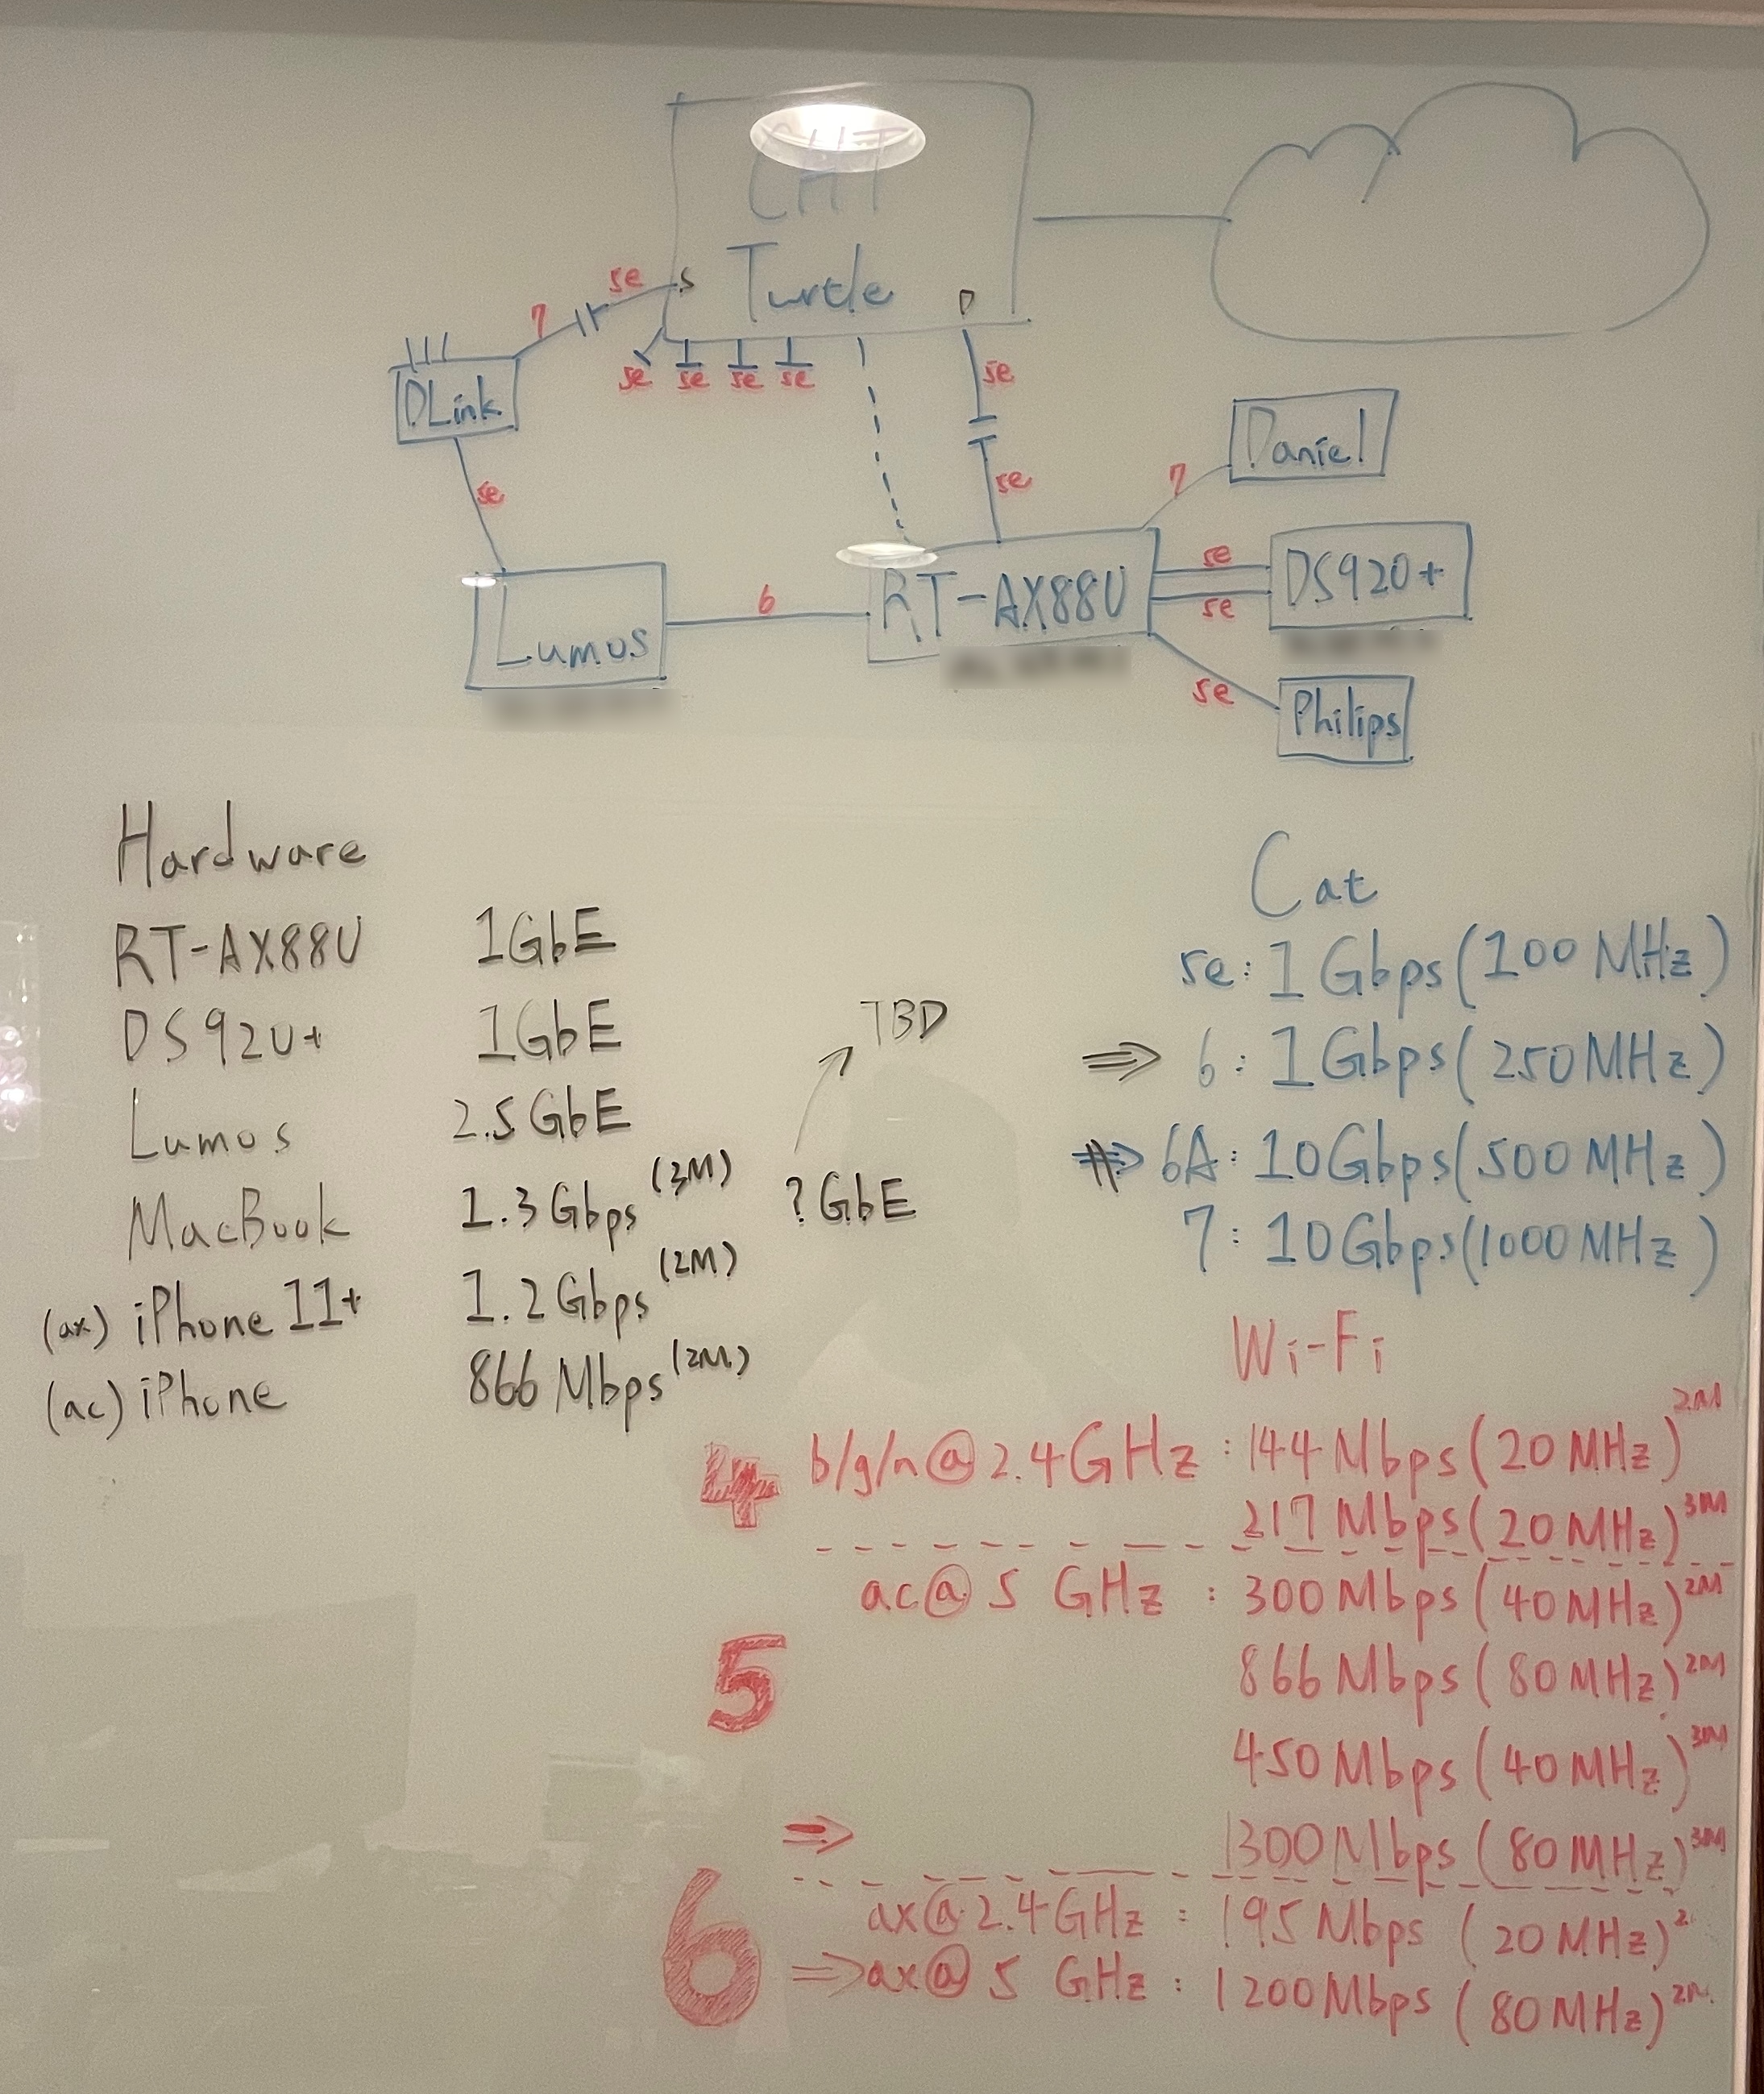 CHT
Turtle
S
D
5e
7
5e
5e
5e
5e
5e
DLink
5e
5e
Daniel
7
Lumos
6
RT-AX88U
5e
5e
DS920+
5e
Philips
Hardware
RT-AX88U 1GbE
DS920+ 1GbE
Lumos 2.5GbE
MacBook 1.3Gbps (3M) ?GbE
TBD
(ax) iPhone 11+ 1.2Gbps (2M)
(ac) iPhone 866 Mbps (2M)
Cat
5e: 1Gbps (100 MHz)
⇒ 6: 1Gbps (250MHz)
⇒ 6A: 10Gbps (500MHz)
7: 10Gbps (1000MHz)
Wi-Fi
4 b/g/n@2.4GHz: 144Mbps (20MHz) 2M
217 Mbps (20MHz) 3M
5 ac@5 GHz: 300Mbps (40MHz) 2M
866Mbps (80MHz) 2M
450Mbps (40MHz) 3M
⇒ 1300Mbps (80MHz) 3M
6 ax@2.4GHz: 195Mbps (20MHz) 2
⇒ ax@5 GHz: 1200Mbps (80MHz) 2M